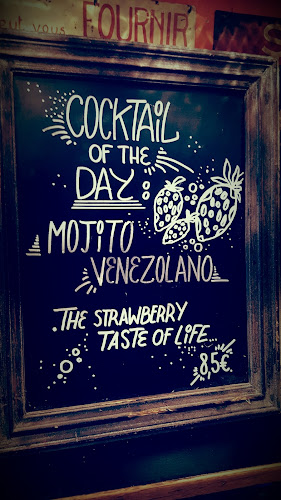 vous FOURNIR
COCKTAIL
OF THE
DAY:
MOJITO
VENEZOLANO
.THE STRAWBERRY
TASTE OF LIFE...
8,5€